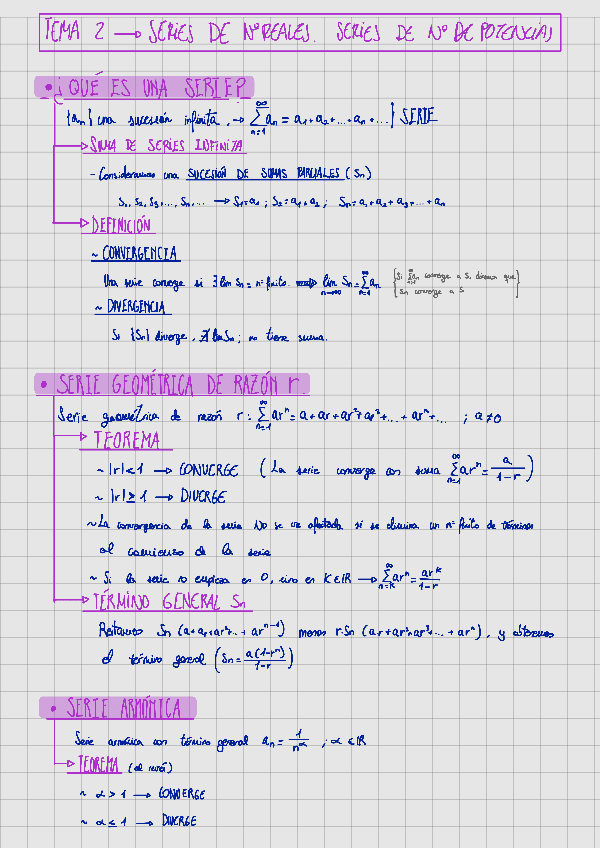 TEMA 2 → SERIES DE Nº REALES. SERIES DE Nº DE POTENCIAS
• ¿QUÉ ES UNA SERIE?
{aₙ} una sucesión infinita, → ∑_{n=1}^{∞} aₙ = a₁+a₂+...+aₙ+...} SERIE
SUMA DE SERIES INFINITA
- Consideramos una SUCESIÓN DE SUMAS PARCIALES (Sₙ)
S₁, S₂, S₃, ..., Sₙ, ... → S₁=a₁ ; S₂=a₁+a₂ ; Sₙ=a₁+a₂+a₃+...+aₙ
DEFINICIÓN
~ CONVERGENCIA
Una serie converge si ∃ lim Sₙ = nº finito. lim_{n→∞} Sₙ = ∑_{n=1}^{∞} aₙ
{Si ∑_{n=1}^{∞} aₙ converge a S, que
Sₙ converge a S}
~ DIVERGENCIA
Si {Sₙ} diverge, ∄ lim Sₙ ; no tiene suma.
• SERIE GEOMÉTRICA DE RAZÓN r.
Serie geométrica de razón r: ∑_{n=1}^{∞} arⁿ = a+ar+ar²+ar³+...+arⁿ+... ; a≠0
TEOREMA
~ |r|<1 → CONVERGE (La serie converge con suma ∑_{n=1}^{∞} arⁿ = a/(1-r))
~ |r|≥1 → DIVERGE
~ La convergencia de la serie NO se ve afectada si se elimina un nº finito de términos
al comienzo de la serie
~ Si la serie no empieza en 0, sino en K∈ℝ → ∑_{n=K}^{∞} arⁿ = arᴷ/(1-r)
TÉRMINO GENERAL Sₙ
Restamos Sₙ (a+ar+ar²+...+arⁿ⁻¹) menos r·Sₙ (ar+ar²+ar³+...+arⁿ), y obtenemos
el término general (Sₙ = a(1-rⁿ)/(1-r))
• SERIE ARMÓNICA
Serie armónica con término general aₙ = 1/n^α ; α∈ℝ
TEOREMA (al revés)
~ α>1 → CONVERGE
~ α≤1 → DIVERGE